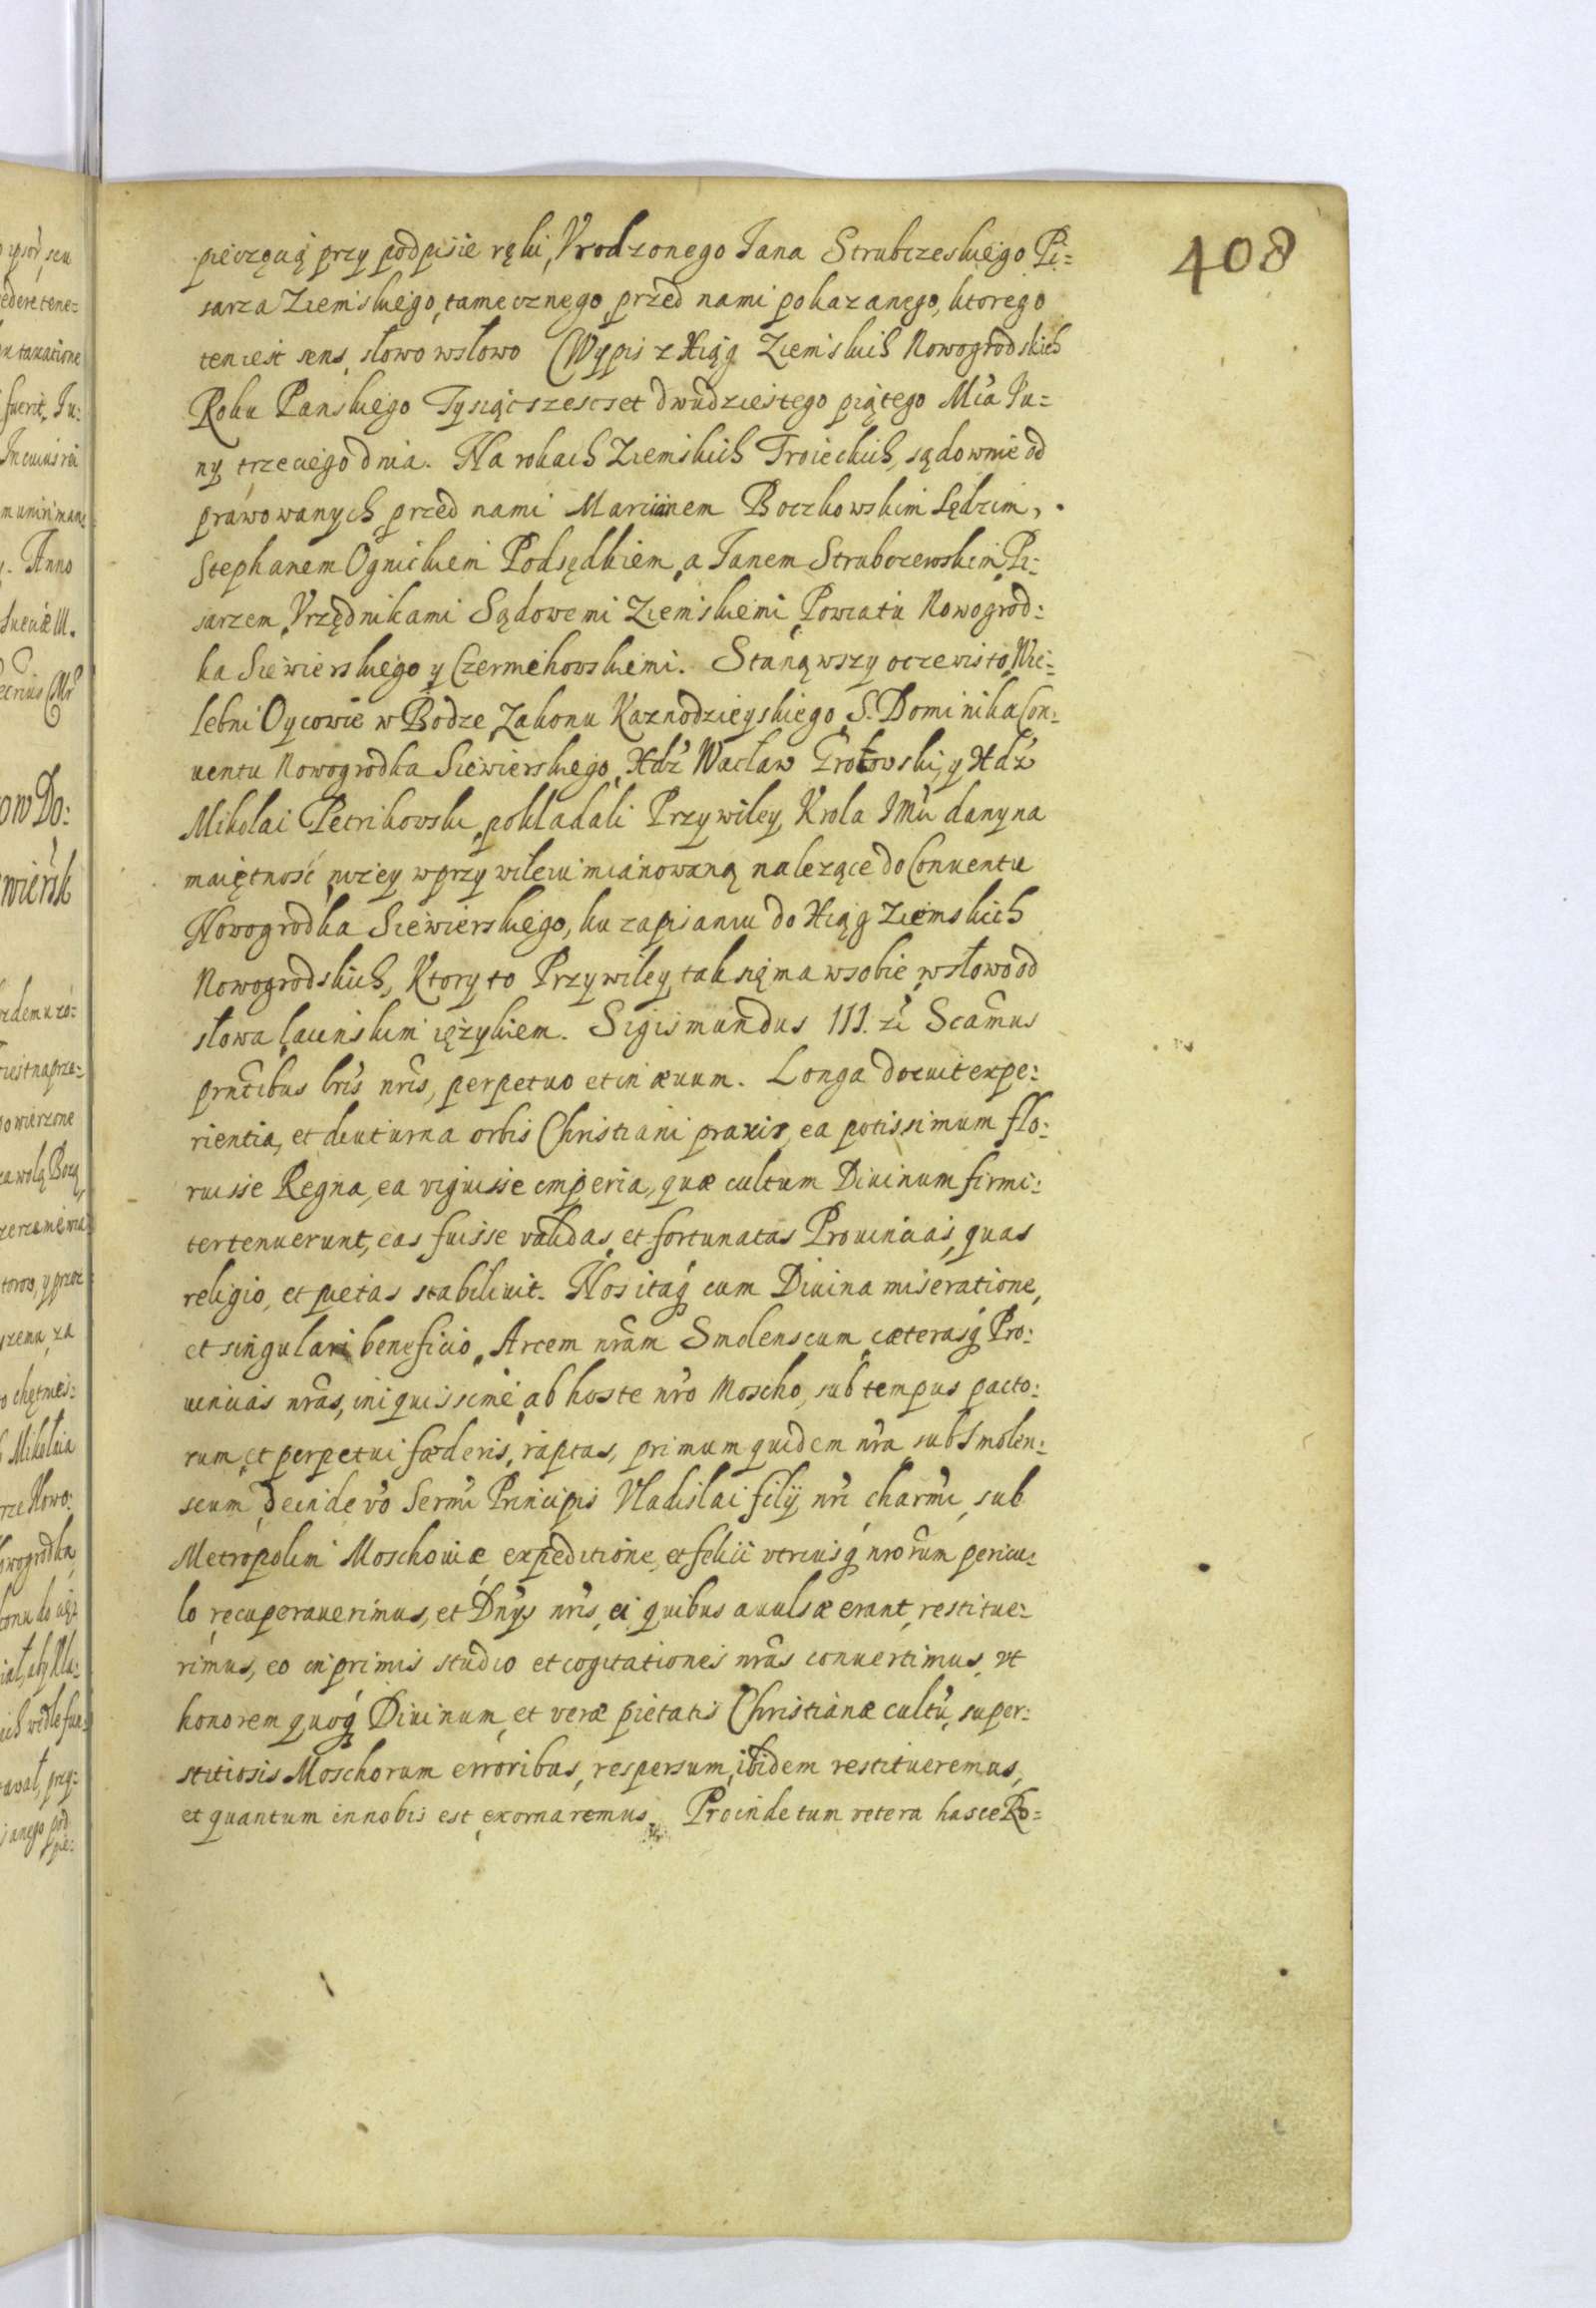 408
pieczęcią przy podpisie ręki, Vrodzonego Jana Strubczeskiego Pi:
sarza Ziemskiego, tamecznego przed nami pokazanego, ktorego
ten iest sens, słowo wsłowo Wypis z Xiąg Ziemskich Nowogrodskich
Roku Panskiego Tysiącszescset dwudziestego piątego Mca Ju=
ny trzeciego dnia. Na rokach Ziemskich Troieckich, sądownie od
prawowanych, przed nami Marcinem Boczkowskim Sędzim,
Stephanem Ognickiem Podsędkiem, a Janem Strubczewskim Pi:
sarzem, Vrzędnikami Sądowemi Ziemskiemi, Powiatu Nowogrod:
ka Siewierskiego y Czerniehowskiemi. Stanąwszy oczewisto, Wie:
lebni Oycowie w Bodze Zakonu Kaznodzieyskiego S. Dominika Con:
uentu Nowogrodka Siewierskiego, Xdz Wacław Grotowski, y Xdz
Mikolai Petrikowski, pokładali Przywiley Krola JMci dany na
maiętność niżey wprzywileiu mianowaną należące do Conuentu
Nowogrodka Siewierskiego, ku zapisaniu do Xiąg Ziemskich
Nowogrodskich, Ktory to Przywiley, tak się ma wsobie, wsłowo od
słowa łacinskim ięzykiem. Sigismundus III. etc Scamus
prntibus lris nris, perpetuo et in æuum. Longa docuit expe:
rientia, et diuturna orbis Christiani praxis, ea potissimum flo:
ruisse Regna, ea viguisse imperia, quæ cultum Diuinum firmi:
ter tenuerunt, eas fuisse validas, et fortunatas Prouincias, quas
religio, et pietas stabiliuit. Nos itaq cum Diuina miseratione,
et singulari beneficio, Arcem nram Smolenscum, cæterasq Pro:
uincias nras, iniquissime, ab hoste nro Moscho, sub tempus pacto:
rum, et perpetui fœderis, raptas, primum quidem nra sub Smolen:
scum, deinde vo Sermi Principis Vladislai filij nri charmi, sub
Metropolim Moschouiæ, expeditione, et felici vtriusq nrorum pericu:
lo recuperauerimus, et Dnys nris, ei quibus auulsæ erant, restitue:
rimus, eo inprimis studio et cogitationes nras conuertimus, vt
honorem quoq Diuinum, et veræ pietatis Christianæ cultu, super:
stitiosis Moschorum erroribus, respersum, ibidem restitueremus,
et quantum in nobis est, exornaremus. Proinde tum vetera hasce Ro=